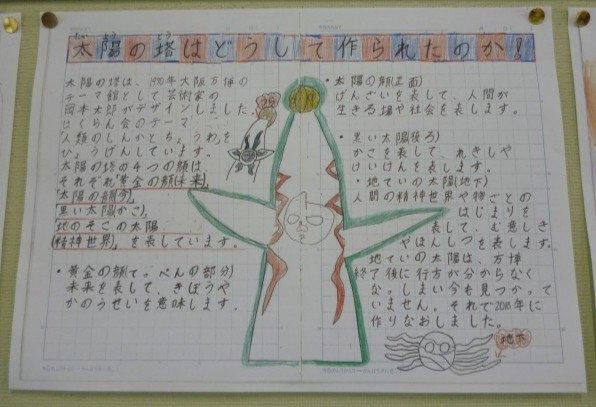 太陽の塔はどうして作られたのか!
太陽の塔は、1970年大阪万博の
テーマ館として芸術家の
岡本太郎がデザインしました。
はくらん会のテーマ
「人類のしんかとちょうわ」を
ひょうげんしています。
太陽の塔の4つの顔は、
それぞれ「黄金の顔(未来)」
「太陽の顔(今)」
「黒い太陽(かこ)」
「地のそこの太陽
(精神世界)」を表しています。
・黄金の顔(てっぺんの部分)
未来を表して、きぼうや
かのうせいを意味します。
・太陽の顔(正面)
げんざいを表して、人間が
生きる場や社会を表します。
・黒い太陽(後ろ)
かこを表して、れきしや
けいけんを表します。
・地ていの太陽(地下)
人間の精神世界や物ごとの
はじまりを
表して、む意しき
やほんしつを表します。
地ていの太陽は、万博
終了後に行方が分からなく
なってしまい今も見つかって
いません。それで2018年に
作りなおしました。
地下